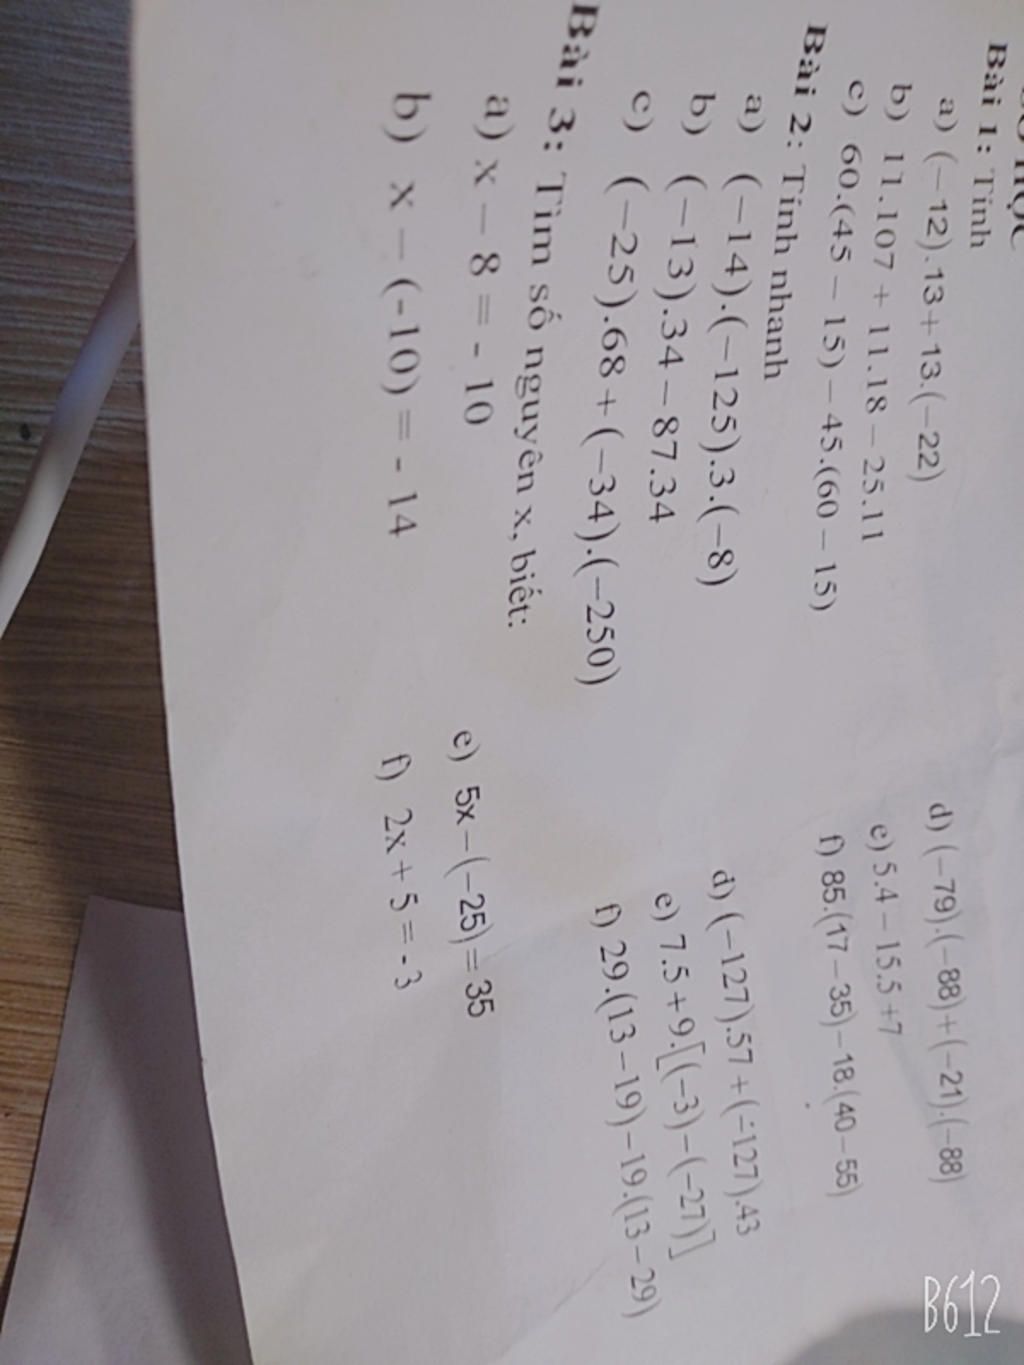 Bài 1: Tính
a) (−12).13+13.(−22)
b) 11.107 + 11.18 − 25.11
c) 60.(45 − 15) − 45.(60 − 15)
d) (−79).(−88)+(−21).(−88)
e) 5.4 − 15.5 +7
f) 85.(17 − 35) − 18.(40 − 55)
Bài 2: Tính nhanh
a) (−14).(−125).3.(−8)
b) (−13).34 − 87.34
c) (−25).68 + (−34).(−250)
d) (−127).57 + (−127).43
e) 7.5 + 9.[(−3) − (−27)]
f) 29.(13 − 19) − 19.(13 − 29)
Bài 3: Tìm số nguyên x, biết:
a) x − 8 = - 10
b) x − (-10) = - 14
e) 5x − (−25) = 35
f) 2x + 5 = - 3
B612